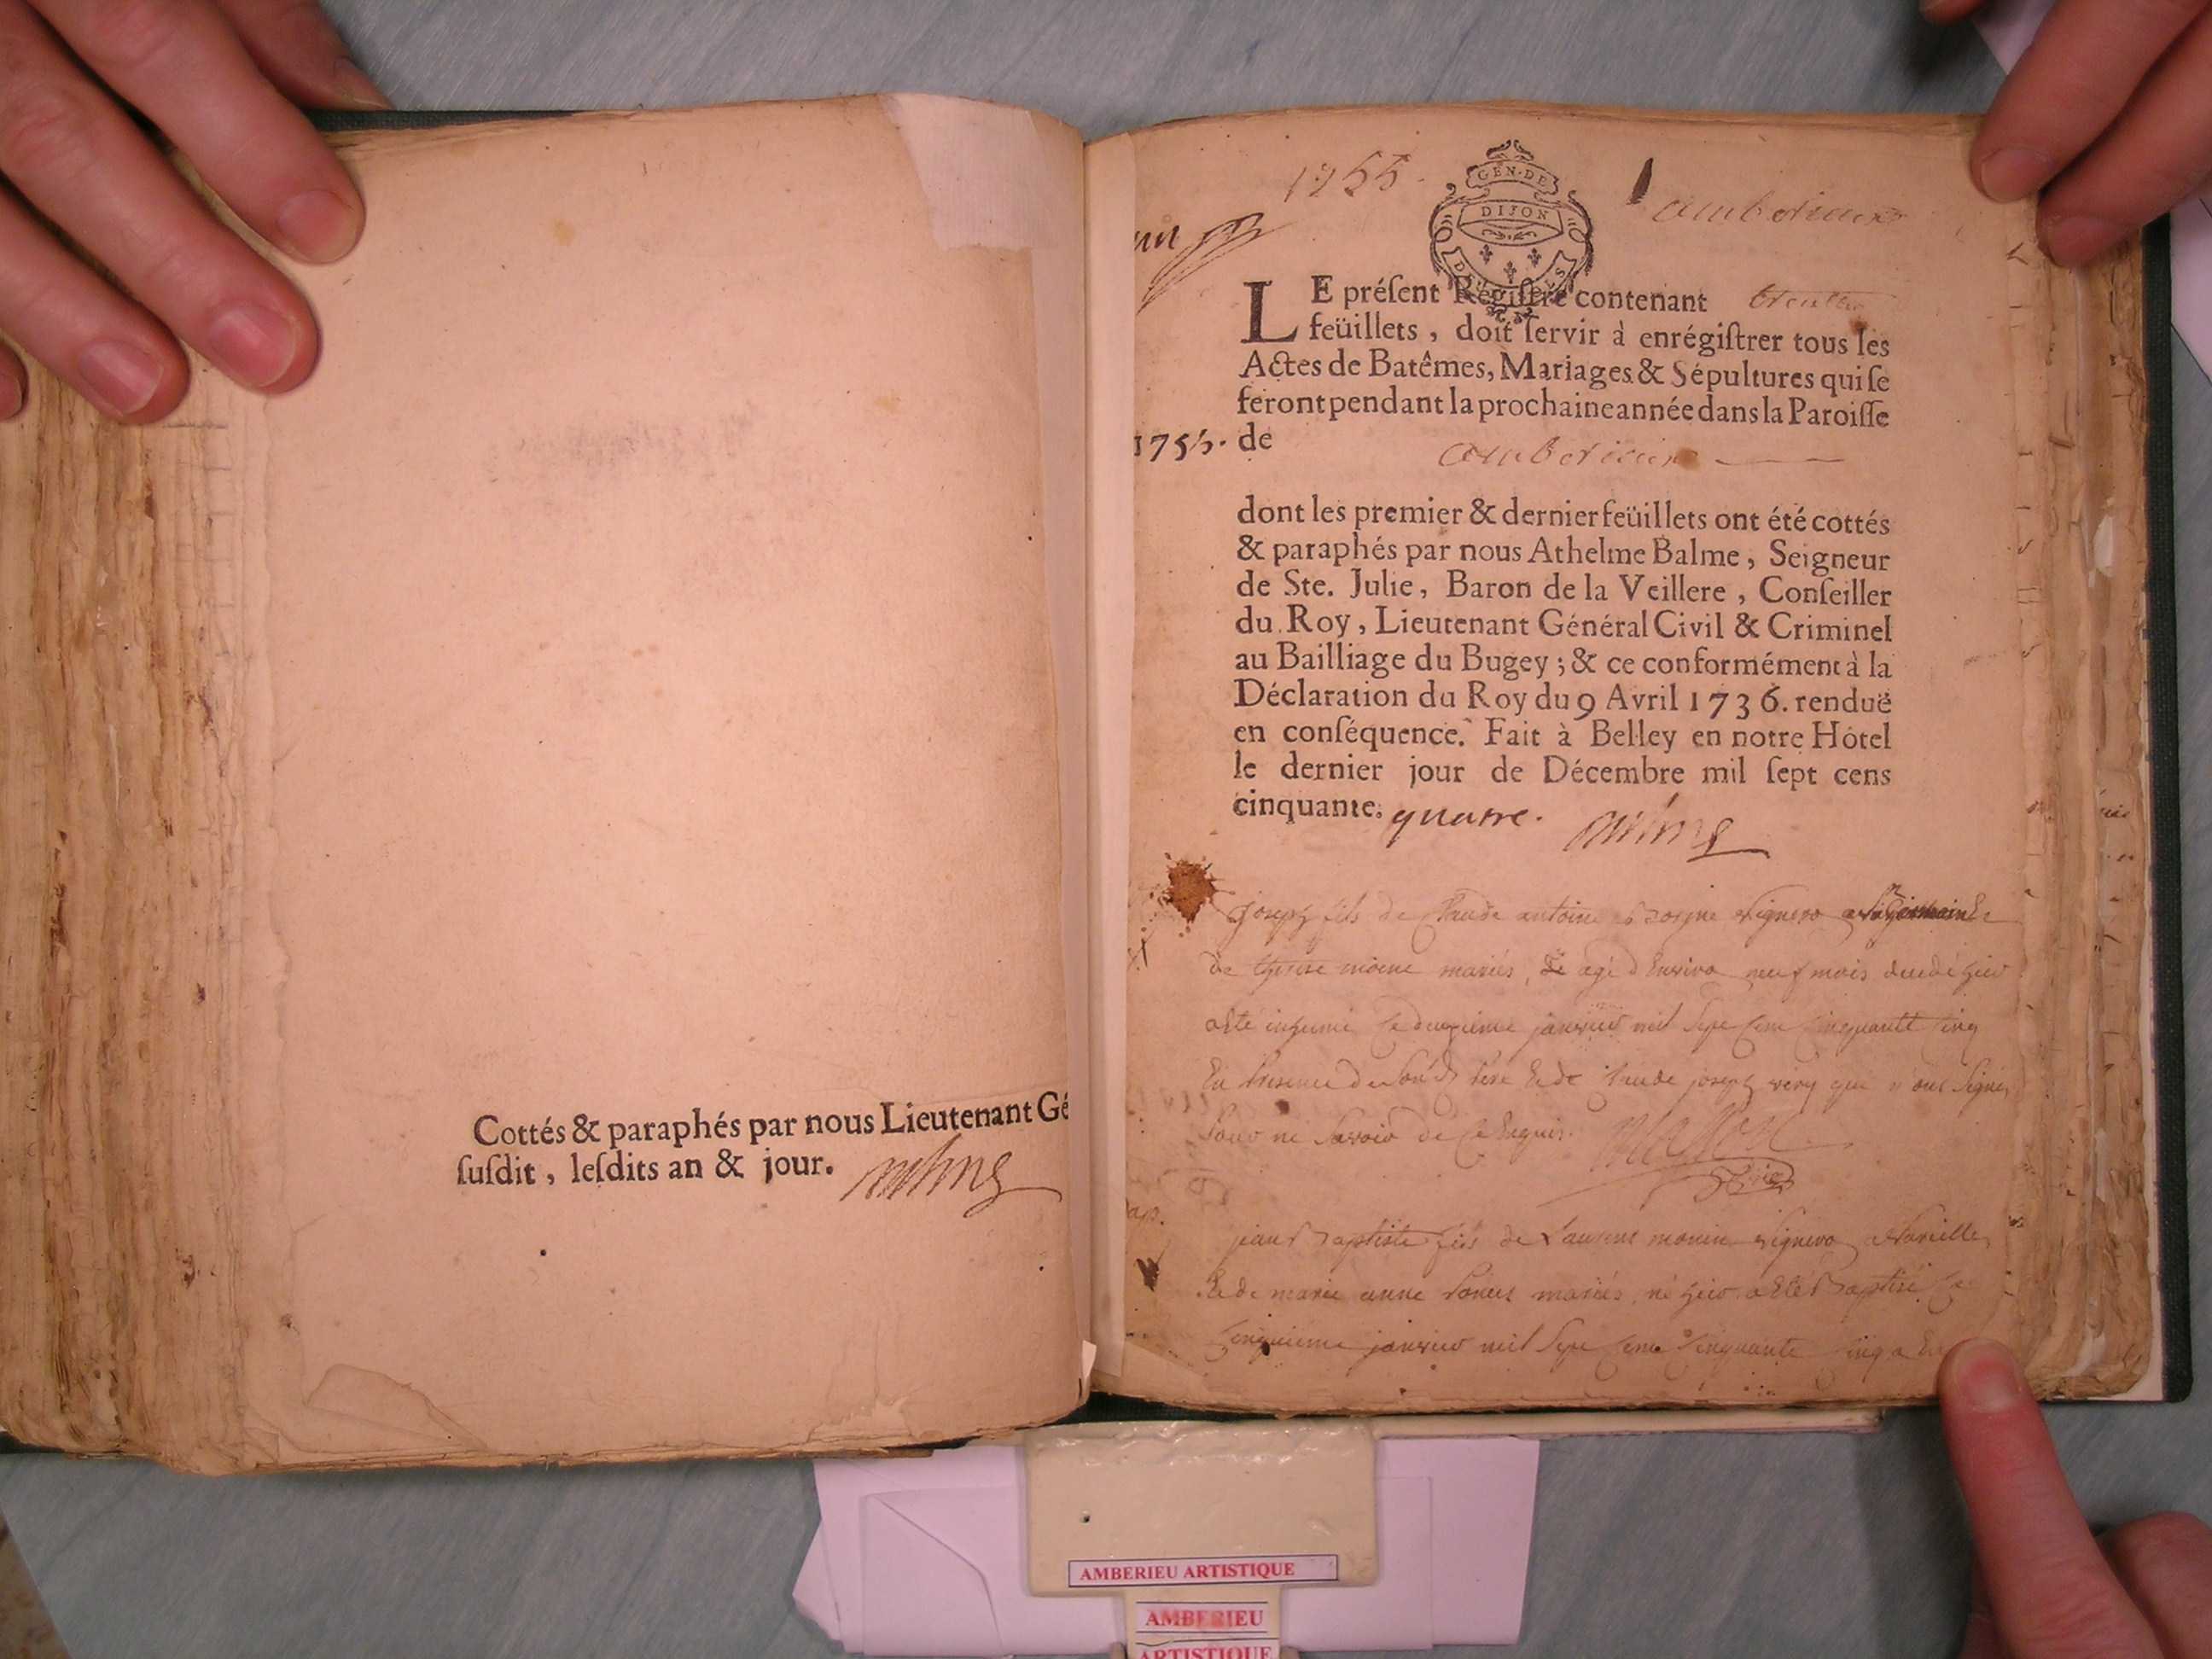 Cottés & paraphés par nous Lieutenant Gé
ſuſdit, leſdits an & jour.
1755.
GEN·DE
DIJON
amberieux
LE préſent Régiſtre contenant trente
feüillets, doit ſervir à enrégiſtrer tous les
Actes de Batêmes, Mariages & Sépultures qui ſe
feront pendant la prochaine année dans la Paroiſſe
1755. de
amberieux
dont les premier & dernier feüillets ont été cottés
& paraphés par nous Athelme Balme, Seigneur
de Ste. Julie, Baron de la Veillere, Conſeiller
du Roy, Lieutenant Général Civil & Criminel
au Bailliage du Bugey; & ce conformément à la
Déclaration du Roy du 9 Avril 1736. renduë
en conſéquence. Fait à Belley en notre Hôtel
le dernier jour de Décembre mil ſept cens
cinquante. quatre.
Joseph fils de Claude antoine vigneron a St Germain &
de mariés, agé d'Environ neuf mois decedé hier
a Eté inhumé Le deuxieme janvier mil Sept Cent Cinquante Cinq
En Presence de Sond Pere & de Claude joseph qui n'ont Signé
Pour ne Savoir de Ce Enquis.
jean Baptiste fils de Laurent monin vigneron a Vareille
& de marie anne mariés, né hier a Eté Baptisé Ce
Cinquieme janvier mil Sept Cent Cinquante Cinq a Eu
AMBERIEU ARTISTIQUE
AMBERIEU
ARTISTIQUE